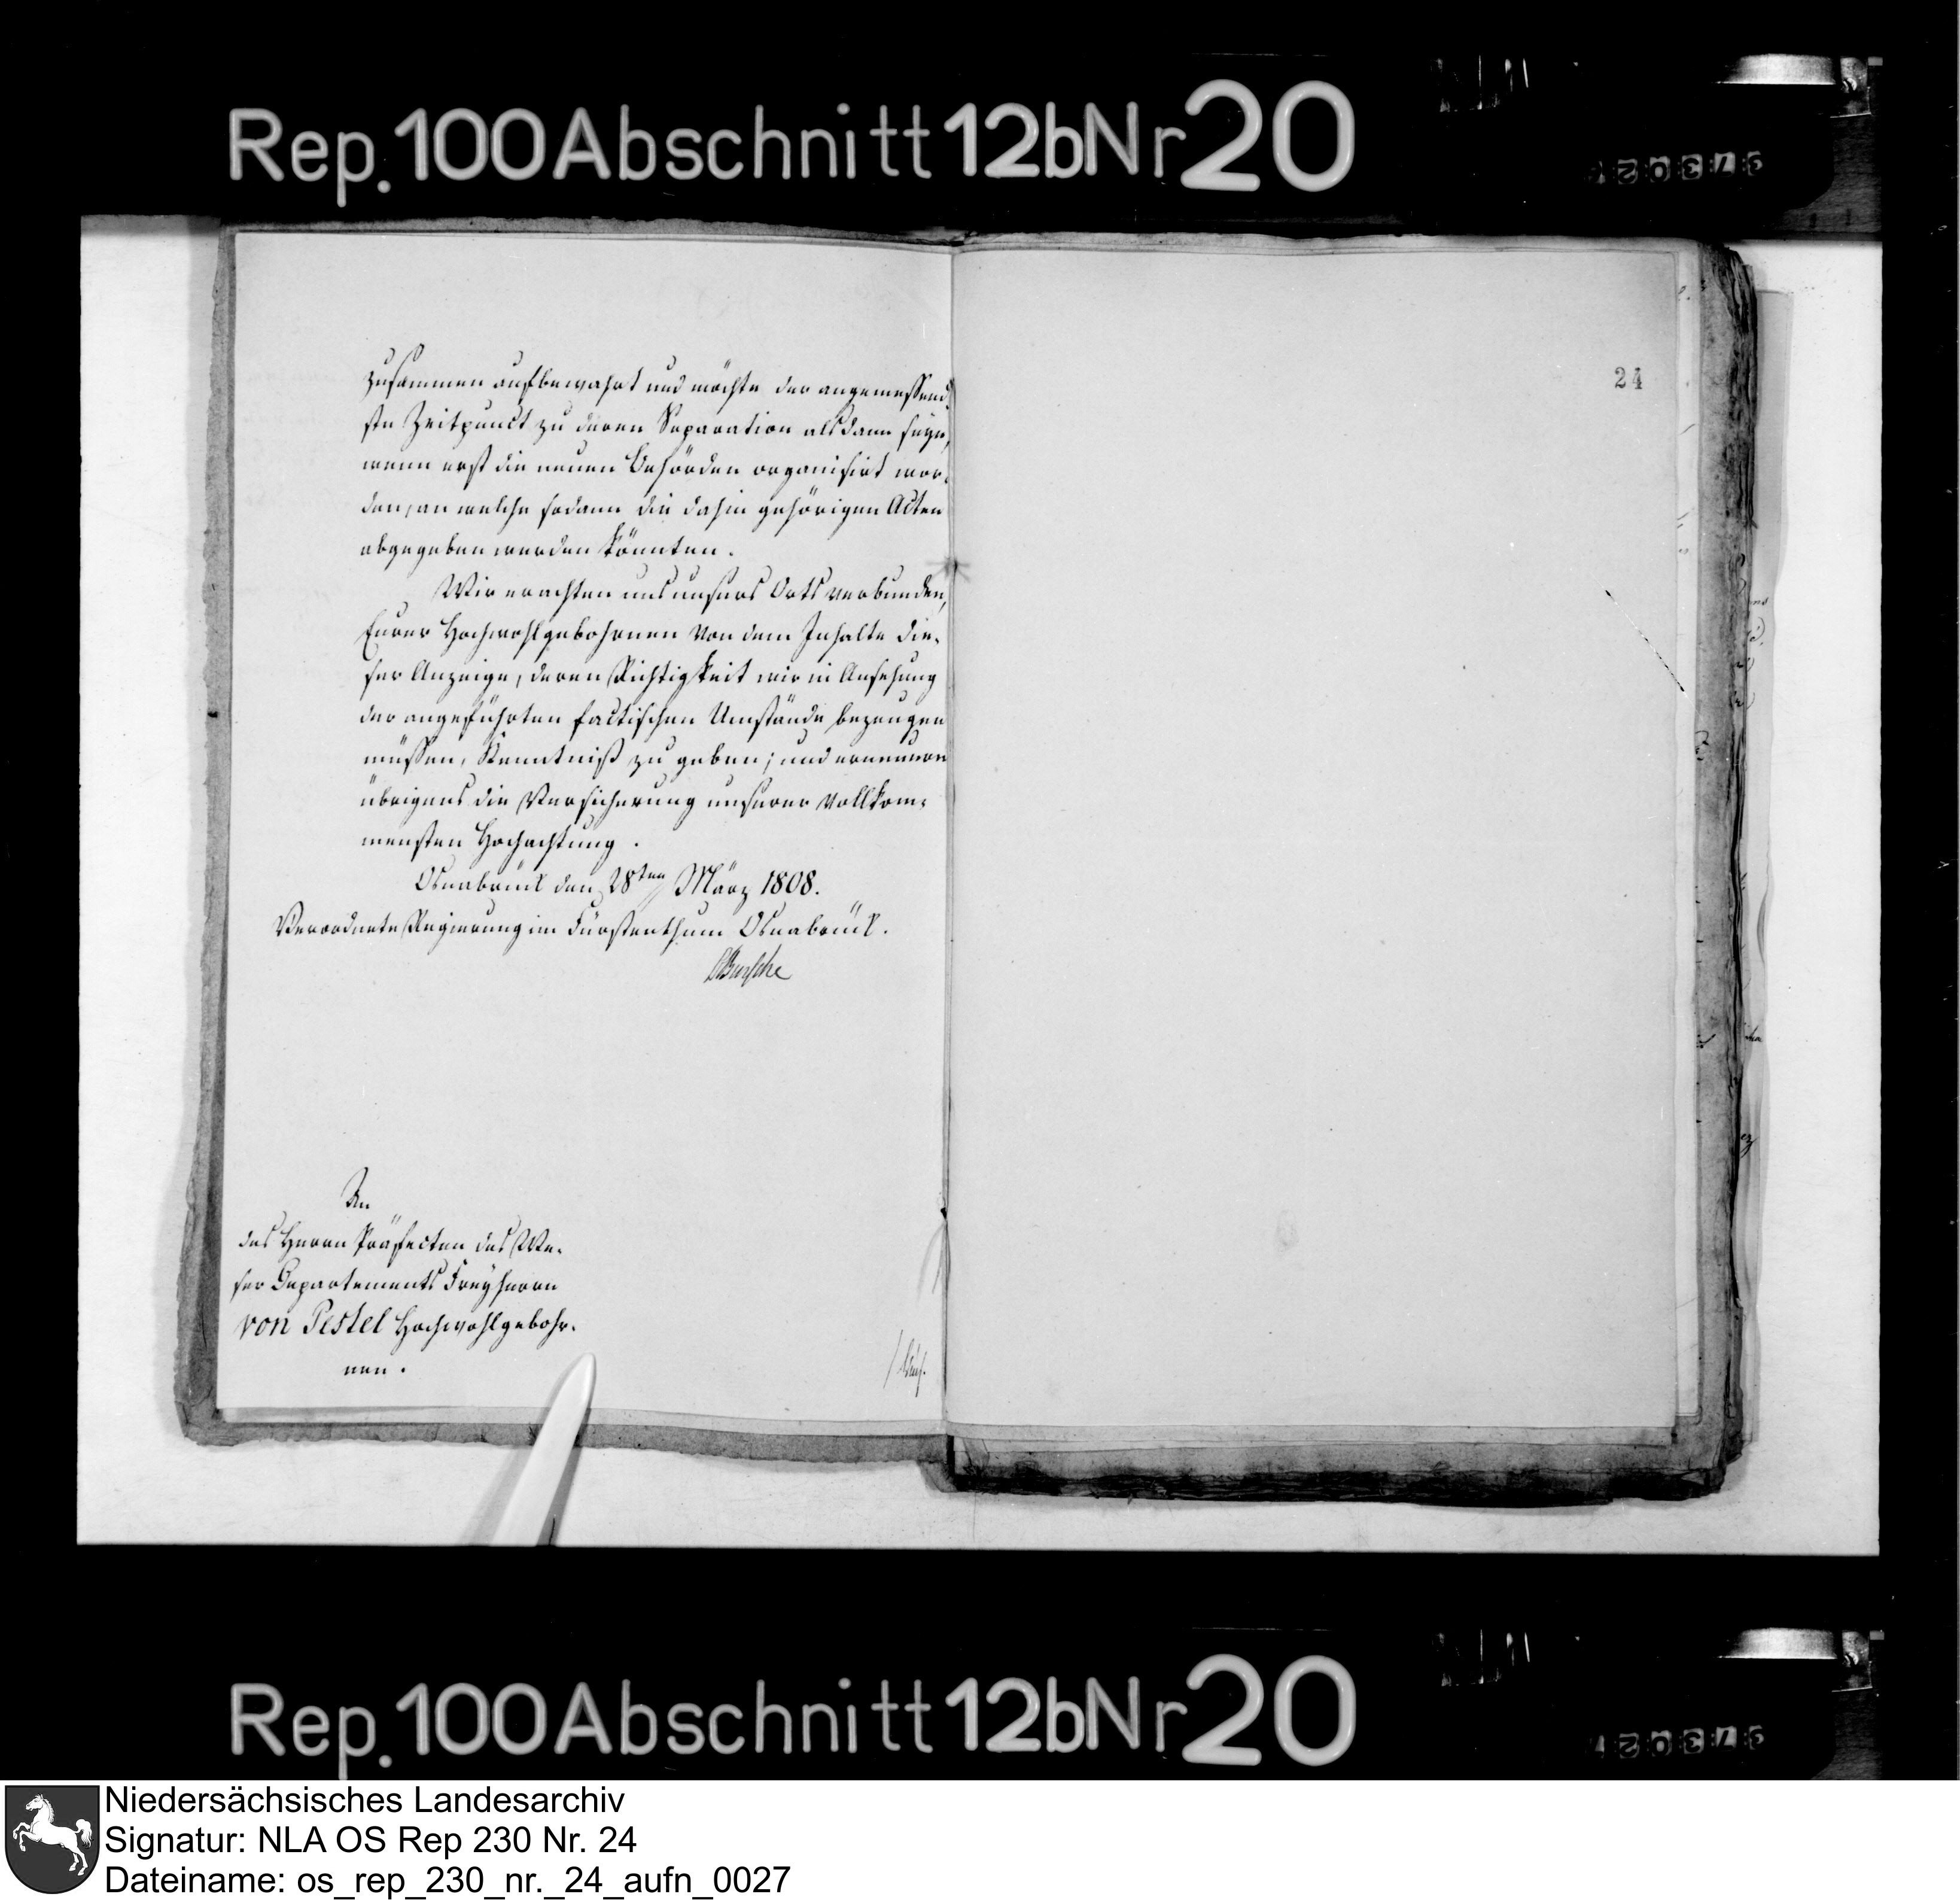 Rep. 100 Abschnitt 12b Nr 20
zusammen aufbewahrt und möchte der angemessend-
ste Zeitpunct zu deren Separation alsdann seyn,
wenn erst die neuen Behörden organisirt wor-
den, an welche sodann die dahin gehörigen Acten
abgegeben werden könnten.
Wir erachten uns unsers Orts verbunden,
Eurer Hochwohlgebohrnen von dem Inhalte die-
ser Anzeige, deren Richtigkeit wir in Ansehung
der angeführten factischen Umstände bezeugen
müssen, Kenntniß zu geben; und erneuern
übrigens die Versicherung unserer vollkom-
mensten Hochachtung.
Osnabrück den 28ten März 1808.
Verordnete Regierung im Fürstenthum Osnabrück.
Bussche
An
des Herrn Präfecten des We-
ser Departements Freyherrn
von Pestel Hochwohlgebohr-
nen.
24
Rep. 100 Abschnitt 12b Nr 20
Niedersächsisches Landesarchiv
Signatur: NLA OS Rep 230 Nr. 24
Dateiname: os_rep_230_nr._24_aufn_0027